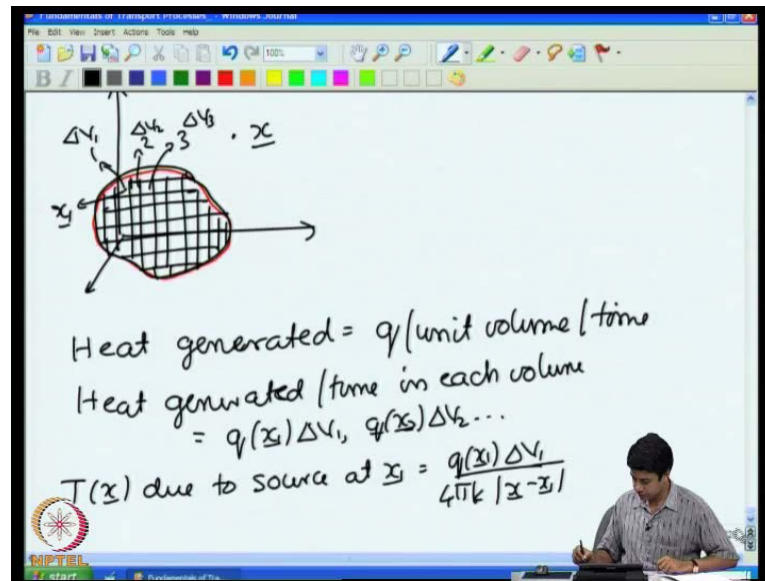 Fundamentals of Transport Processes_ - Windows Journal
File Edit View Insert Actions Tools Help
100%
B I
ΔV₁ ΔV₂ ΔV₃
2 3 . x
x₁
Heat generated = q/unit volume/time
Heat generated/time in each volume
= q(x₁)ΔV₁, q(x₂)ΔV₂...
T(x) due to source at x₁ = q(x₁)ΔV₁ / 4πk |x-x₁|
NPTEL
start Fundamentals of Tra...